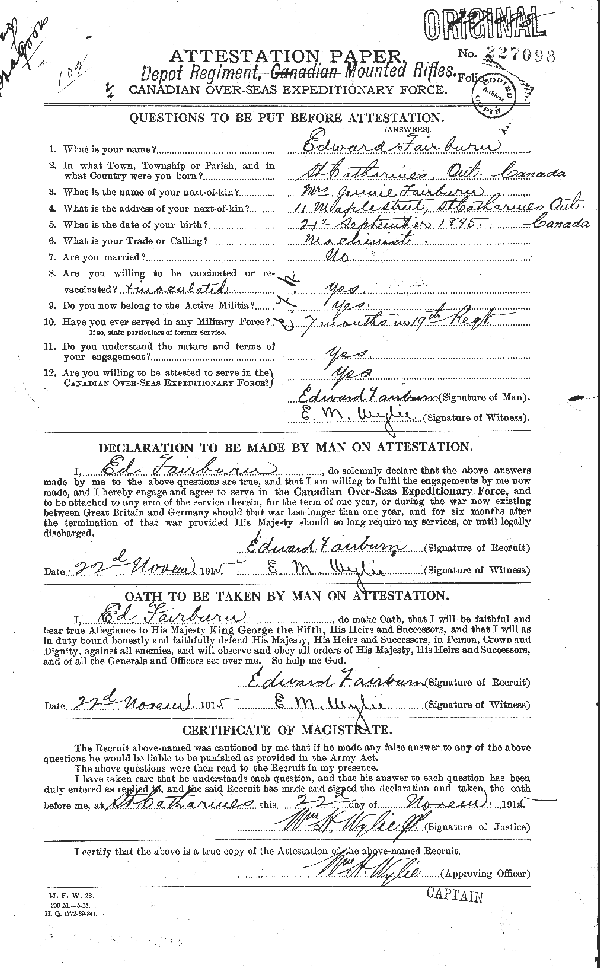 ORIGINAL
ATTESTATION PAPER.
No. 227098
Depot Regiment, Canadian Mounted Rifles.
Folio
CANADIAN OVER-SEAS EXPEDITIONARY FORCE.
QUESTIONS TO BE PUT BEFORE ATTESTATION.
(ANSWERS).
1. What is your name? Edward Fairburn
2. In what Town, Township or Parish, and in
what Country were you born? St Catharines Ont. Canada
3. What is the name of your next-of-kin? Mrs Jennie Fairburn
4. What is the address of your next-of-kin? 11 Maple street, St Catharines Ont. Canada
5. What is the date of your birth? 21st September 1895
6. What is your Trade or Calling? Machinist
7. Are you married? No
8. Are you willing to be vaccinated or re-
vaccinated? + inoculated Yes.
9. Do you now belong to the Active Militia? Yes.
10. Have you ever served in any Military Force? 7 months in 19th Regt
If so, state particulars of former service.
11. Do you understand the nature and terms of
your engagement? Yes
12. Are you willing to be attested to serve in the
CANADIAN OVER-SEAS EXPEDITIONARY FORCE? Yes
Edward Fairburn (Signature of Man).
E. M. Wylie (Signature of Witness).
DECLARATION TO BE MADE BY MAN ON ATTESTATION.
I, Ed Fairburn, do solemnly declare that the above answers
made by me to the above questions are true, and that I am willing to fulfil the engagements by me now
made, and I hereby engage and agree to serve in the Canadian Over-Seas Expeditionary Force, and
to be attached to any arm of the service therein, for the term of one year, or during the war now existing
between Great Britain and Germany should that war last longer than one year, and for six months after
the termination of that war provided His Majesty should so long require my services, or until legally
discharged.
Edward Fairburn (Signature of Recruit)
Date 22nd Novem 1915 E. M. Wylie (Signature of Witness)
OATH TO BE TAKEN BY MAN ON ATTESTATION.
I, Ed Fairburn, do make Oath, that I will be faithful and
bear true Allegiance to His Majesty King George the Fifth, His Heirs and Successors, and that I will as
in duty bound honestly and faithfully defend His Majesty, His Heirs and Successors, in Person, Crown and
Dignity, against all enemies, and will observe and obey all orders of His Majesty, His Heirs and Successors,
and of all the Generals and Officers set over me. So help me God.
Edward Fairburn (Signature of Recruit)
Date 22nd Novem 1915 E. M. Wylie (Signature of Witness)
CERTIFICATE OF MAGISTRATE.
The Recruit above-named was cautioned by me that if he made any false answer to any of the above
questions he would be liable to be punished as provided in the Army Act.
The above questions were then read to the Recruit in my presence.
I have taken care that he understands each question, and that his answer to each question has been
duly entered as replied to, and the said Recruit has made and signed the declaration and taken the oath
before me, at St Catharines this 22nd day of Novem 1915
Wm H. Wylie JP (Signature of Justice)
I certify that the above is a true copy of the Attestation of the above-named Recruit.
Wm H. Wylie (Approving Officer)
CAPTAIN
M. F. W. 23.